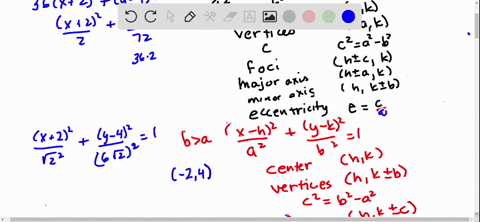 36(x+2)² + (y-4)²
(x+2)²/2 +
72
36·2
vertices
c
c²=a²-b²
foci (h±c, k)
major axis (h±a, k)
minor axis (h, k±b)
eccentricity e = c/a
(x+2)²/√2² + (y-4)²/(6√2)² = 1
b>a (x-h)²/a² + (y-k)²/b² = 1
(-2,4)
center (h,k)
vertices (h, k±b)
c²= b²-a²
(h, k±c)